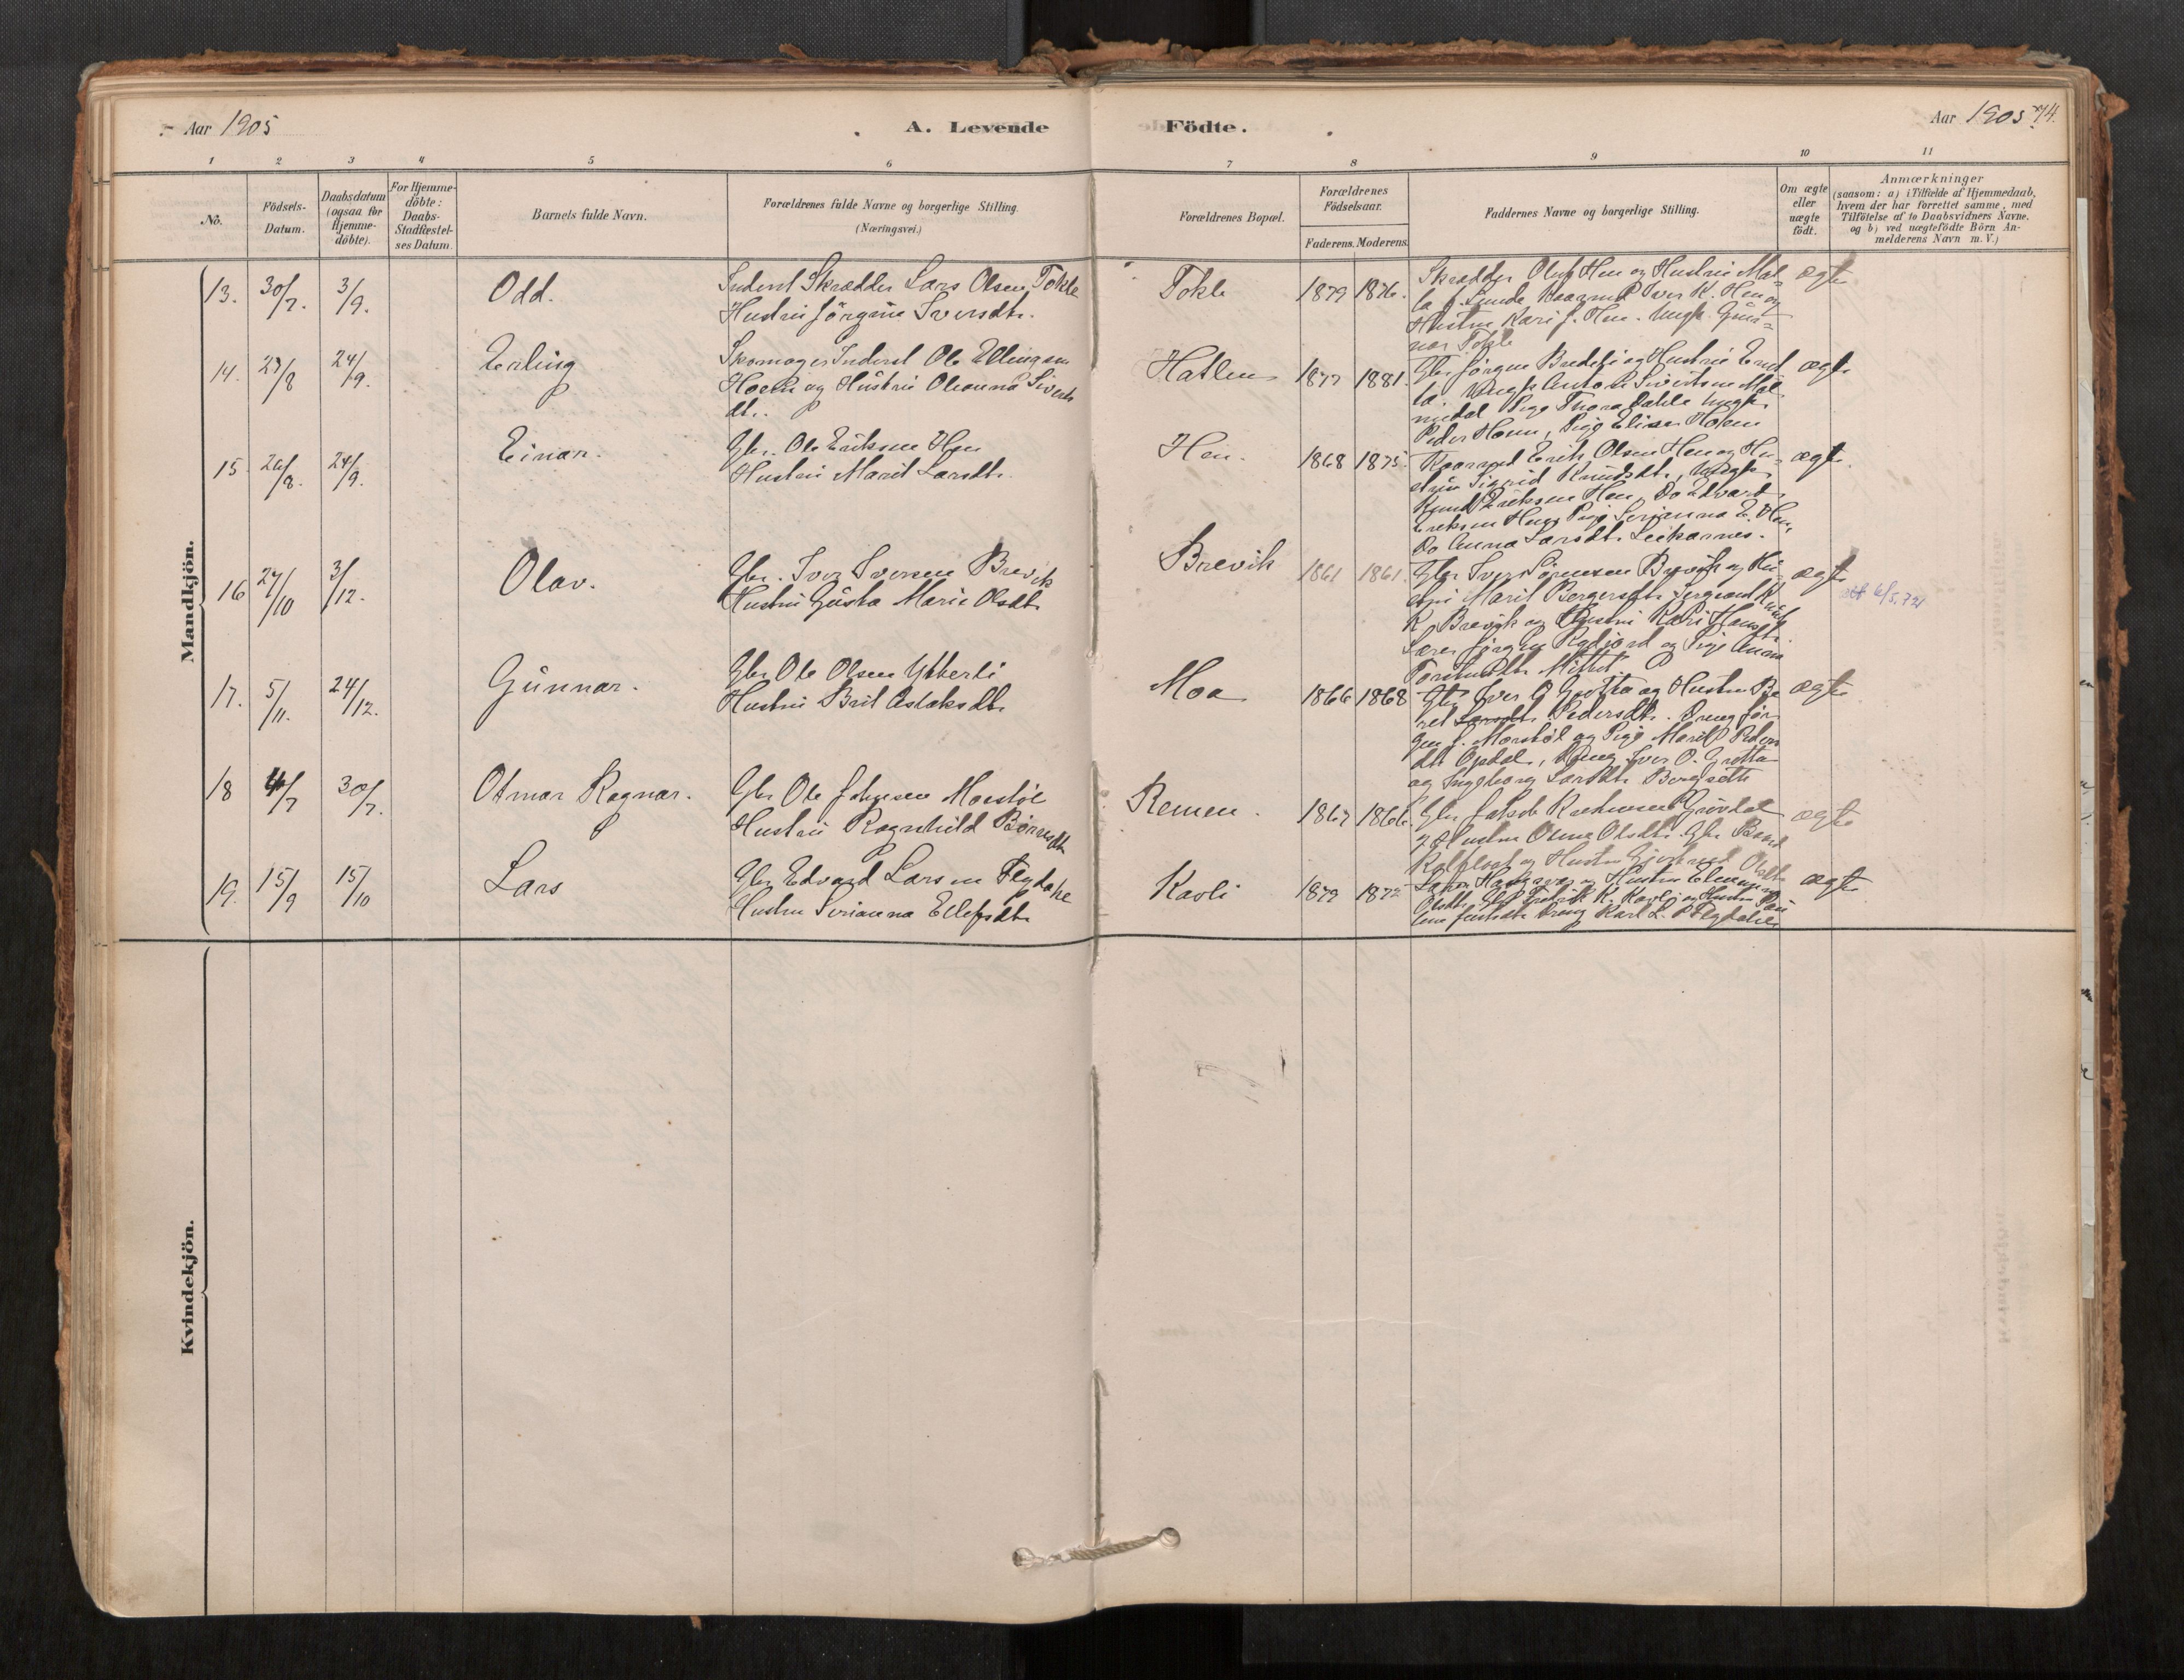 Aar 1905
A. Levende Födte.
Aar 1905 74.
1 2 3 4 5 6 7 8 9 10 11
No.
Födsels-
Datum.
Daabsdatum
(ogsaa for
Hjemme-
döbte).
For Hjemme-
döbte:
Daabs-
Stadfæstel-
ses Datum.
Barnets fulde Navn.
Forældrenes fulde Navne og borgerlige Stilling.
(Næringsvei.)
Forældrenes Bopæl.
Forældrenes
Födselsaar.
Faderens. Moderens.
Faddernes Navne og borgerlige Stilling.
Om ægte
eller
uægte
födt.
Anmærkninger
(saasom: a) i Tilfælde af Hjemmedaab,
hvem der har forrettet samme, med
Tilföielse af to Daabsvidners Navne.
og b) ved uægtefödte Börn An-
melderens Navn m. V.)
Mandkjön.
13. 30/7. 3/9. Odd.
Inderst Skrædder Lars Olsen Tokle
Hustru Jörgine Iversdtr.
Tokle 1879 1876.
Skrædder Oluf Hen og Hustru Mat-
Lunde Kaarmd Iver K. Hen og
Hustru Kari J. Hen. Ungk. Gun-
nar Tokle
ægte
14. 23/8 24/9. Erling
Skomager Inderst Ole Ellingsen
og Hustru Oleanna Siverts
dtr.
Hatlen 1877 1881.
Gbr Jörgen og Hustru
Ungk Anton Sivertsen
Pige Thora Dahle Ungk
Peder, Pige Elise
ægte
15 20/8. 24/9. Einar.
Gbr. Ole Eriksen Hen
Hustru Marit Larsdtr.
Hen. 1868 1875.
Kaarmd Erik Olsen Hen og Hu-
stru Sigrid Knudsdtr, Ungk
Knud Eriksen Hen, Do Edvard
Eriksen Hen, Pige Serianna E. Hen,
Do Anna Larsdtr Leikarnes.
ægte.
16 27/10 3/12. Olav.
Gbr. Iver Iversen Brevik
Hustru Gusta Marie Olsdtr
Brevik 1861 1861.
Gbr Iver Sörensen Brevik og Hu-
stru Marit Bergersdtr Sergeant Knud
K. Brevik og Hustru Kari Hansdtr.
Lærer Jörgen Rödjord og Pige Anna
Torstensdtr Mittet
ægte
17. 5/11. 24/12. Gunnar.
Gbr Ole Olsen Ytterli
Hustru Brit Aslaksdtr
Moa 1866 1868
Gbr Iver O Grötta og Hustru Be
ret Larsdtr Pedersdtr. Dreng Jör-
gen J. Morstöl og Pige Marit Peders
dtr Opdal, Dreng Iver O. Grötta
og Ingeborg Larsdtr Bergsette
ægte
18 4/7 30/7. Otmar Ragnar.
Gbr Ole Johnsen Morstöl
Hustru Ragnhild
Remen. 1867 1866.
Gbr Jakob Grövdal
og Hustru Anne Olsdtr. Gbr Baard
og Hustru Olsdtr
ægte
19. 15/9 15/10 Lars
Gbr Edvard Larsen Flydahe
Hustru Serianna Ellefsdtr
Kavli 1879 1872
Lars og Hustru
Olsdtr, Gbr Fredrik K. Kavli og Hustru
Dreng Karl L. Flydalen
ægte
Kvindekjön.